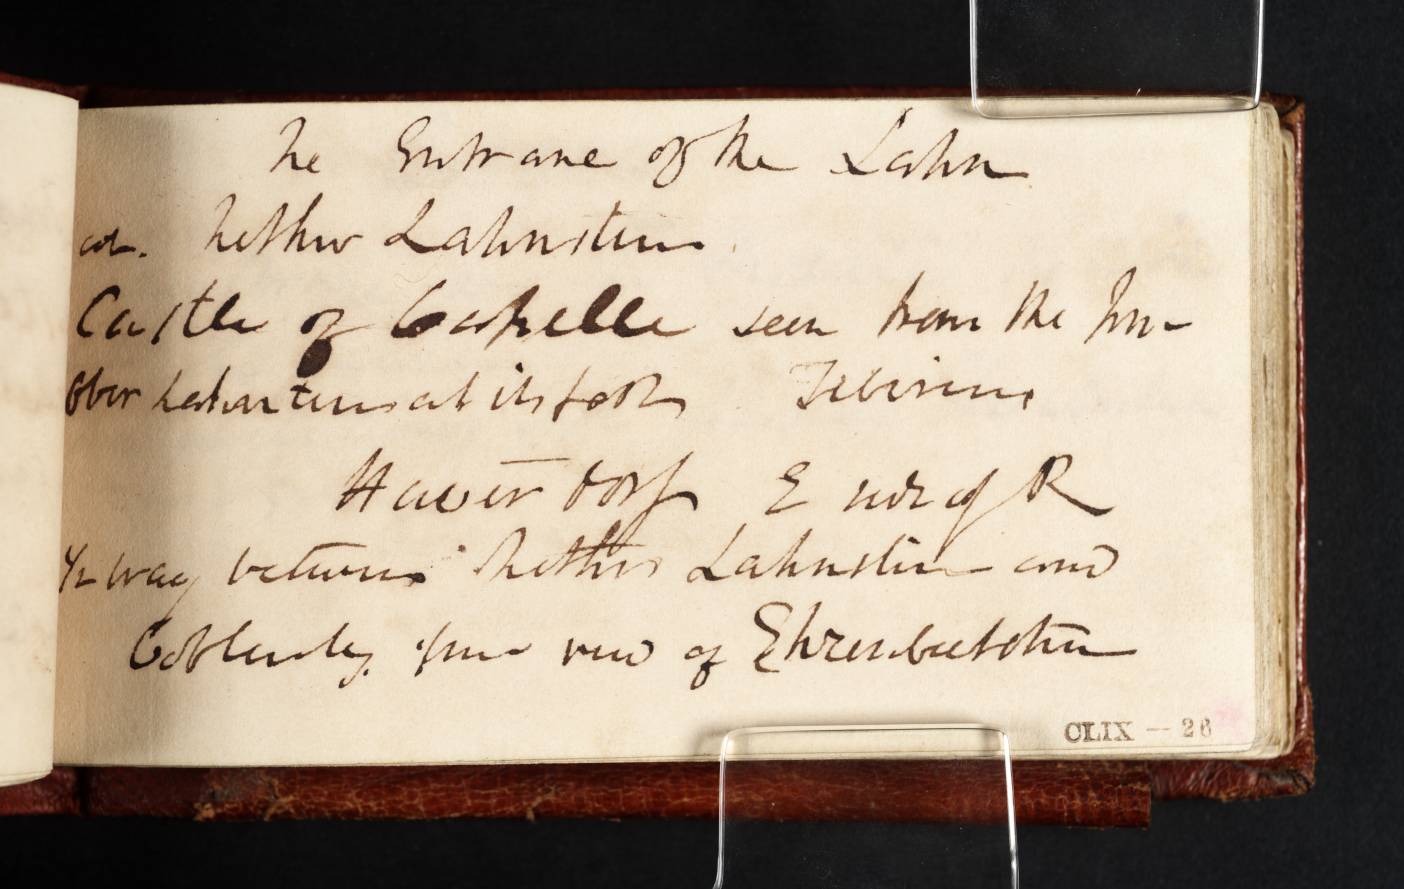 The Entrance of the Lahn
at. Nether Lahnstein
Castle of Capelle seen from the Inn
Ober Lahnstein at its foot
Haverdorf E side of R
½ way between Nether Lahnstein and
Coblentz. fine view of Ehrenbreitstein
CLIX — 26